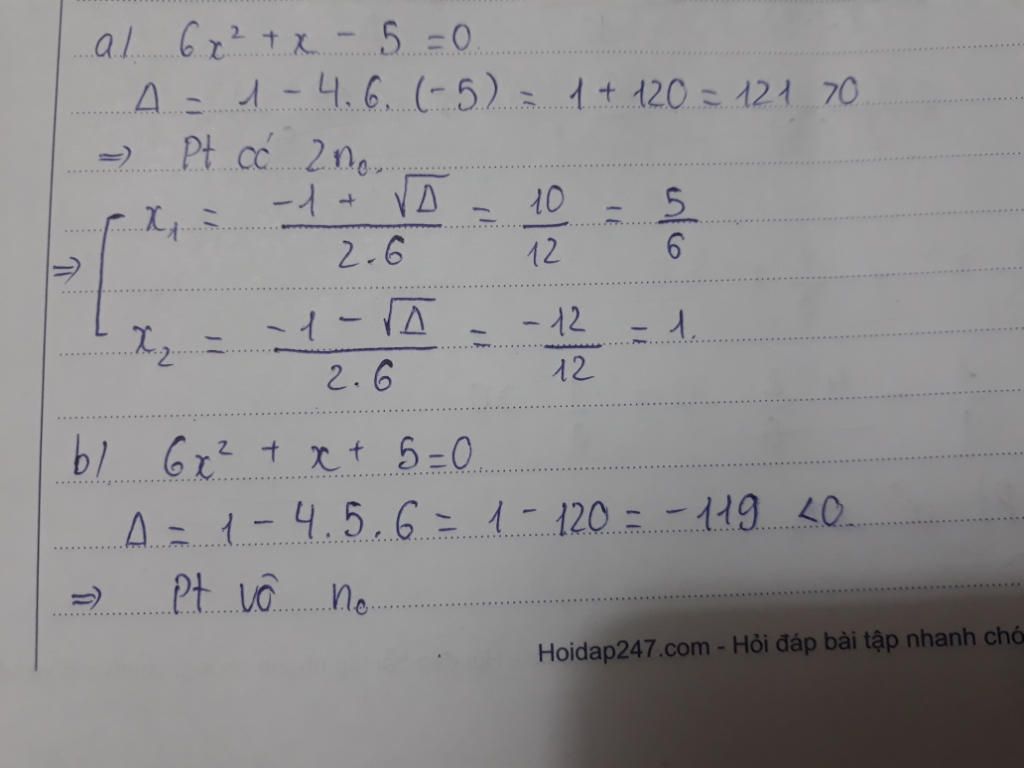 a/ 6x² + x - 5 = 0
Δ = 1 - 4.6.(-5) = 1 + 120 = 121 >0
=> Pt có 2 n₀.
=> [ x₁ = (-1 + √Δ)/(2.6) = 10/12 = 5/6
x₂ = (-1 - √Δ)/(2.6) = -12/12 = 1.
b/ 6x² + x + 5 = 0
Δ = 1 - 4.5.6 = 1 - 120 = -119 <0
=> Pt vô n₀
Hoidap247.com - Hỏi đáp bài tập nhanh chó